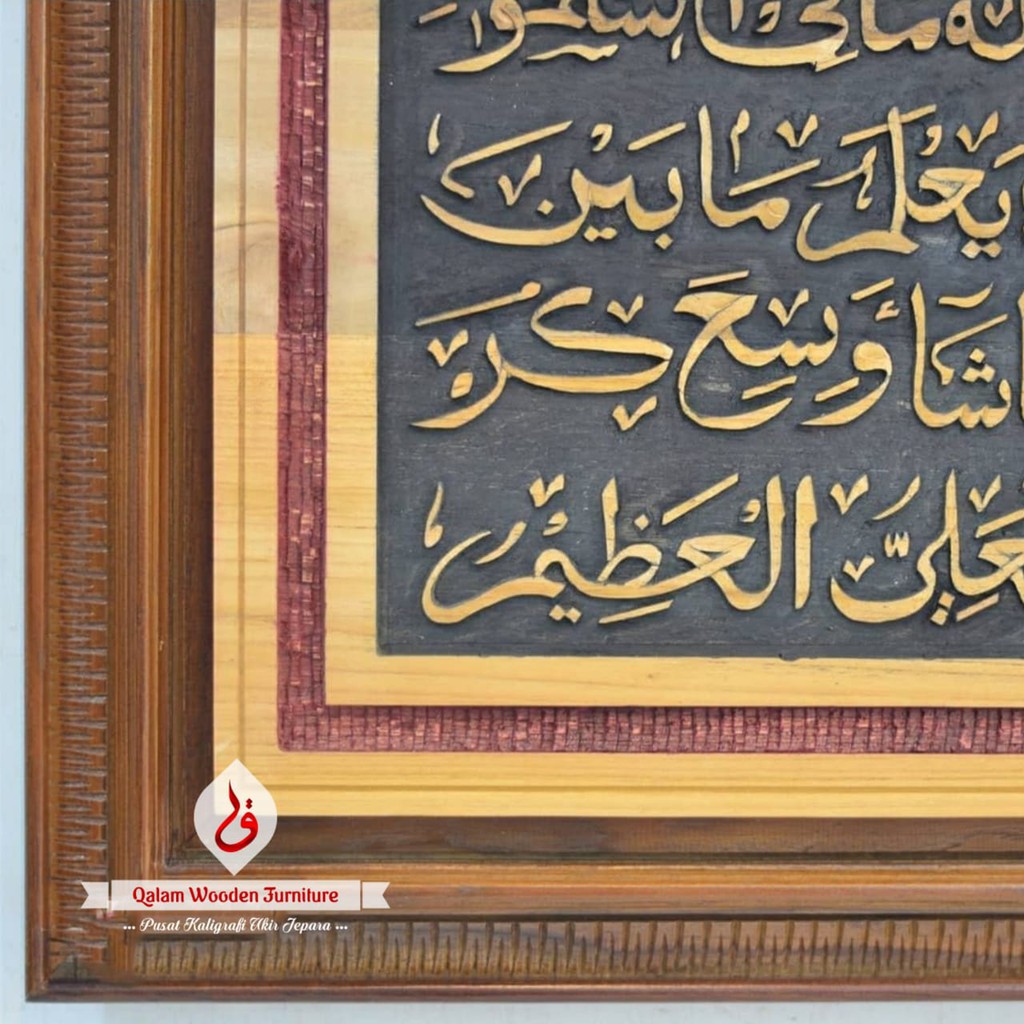 له ما في السموا
يَعْلَمُ مَا بَيْنَ
شَاءَ وَسِعَ كُرْ
عَلِيُّ الْعَظِيمُ
Qalam Wooden Furniture
... Pusat Kaligrafi Ukir Jepara ...